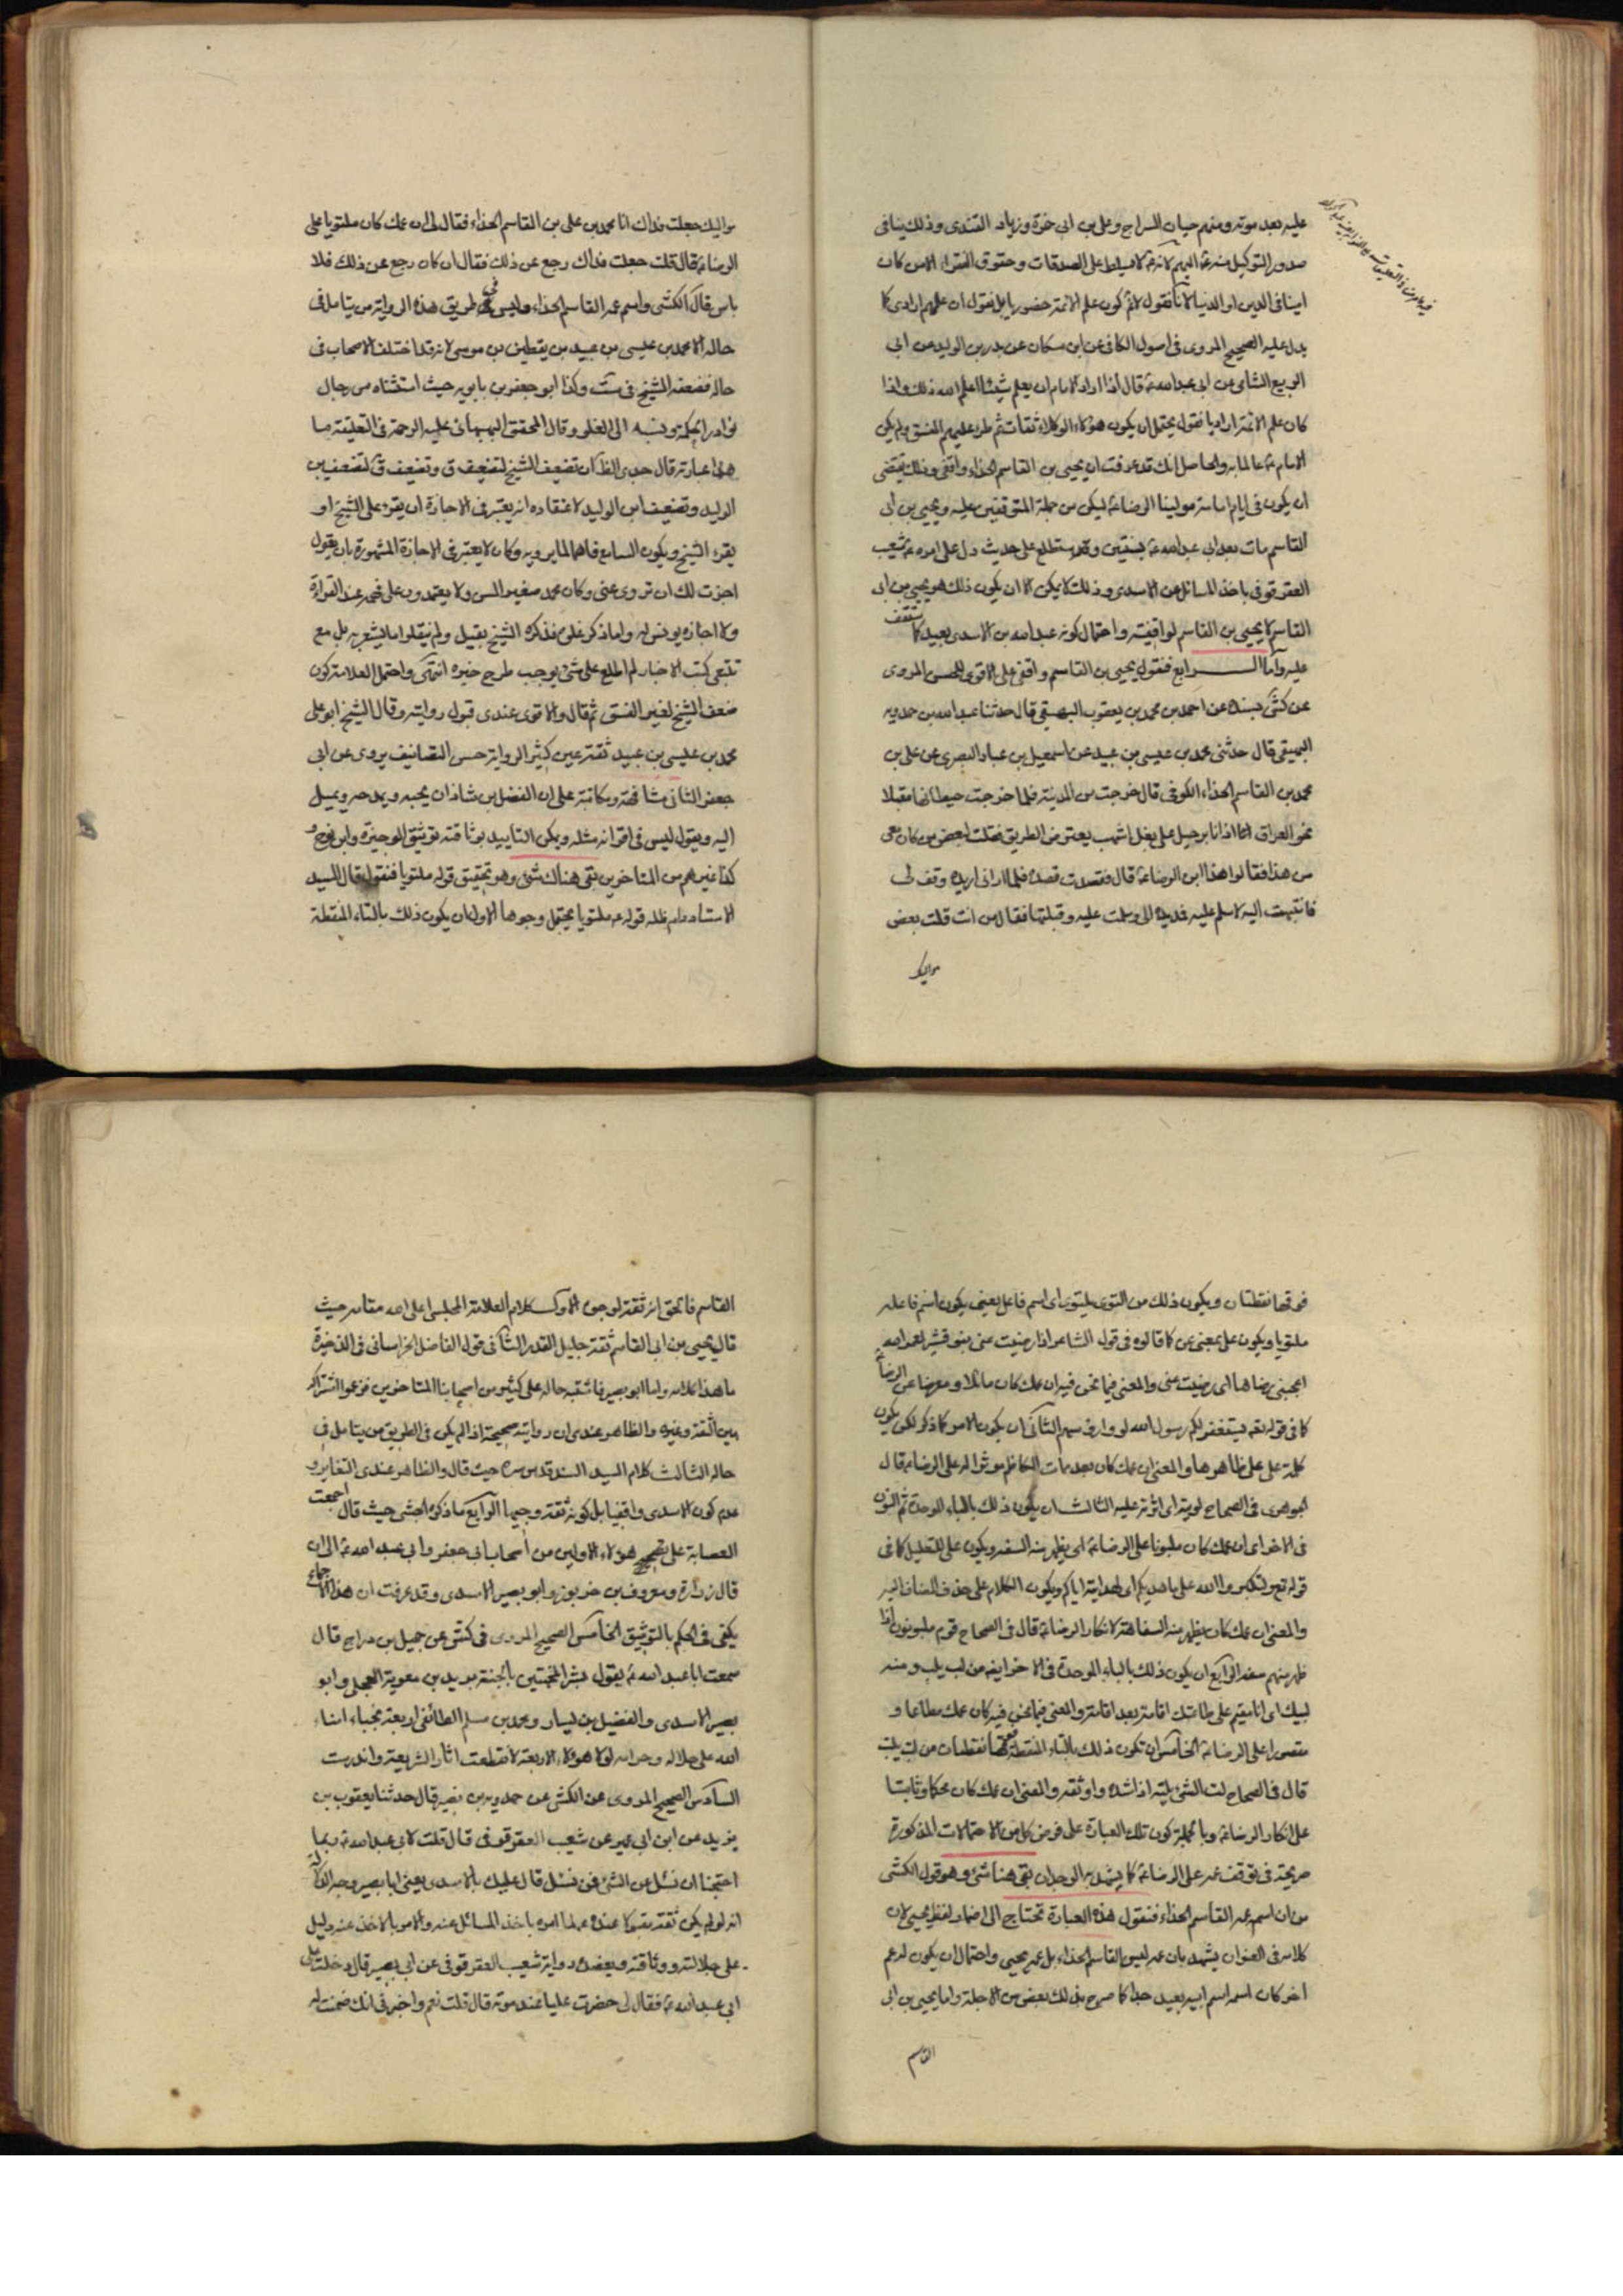 عليه بعد موته ومنهم حيان السراج وعلى بن ابى حمزة وزياد القندى وذلك ينافى
صدور التوكيل منه ع اليهم لانه ع لا يسلط على الصدقات وحقوق الفقراء الا من كان
امينا فى الدين او الدنيا لانا نقول لا نم كون علم الائمة حضوريا بل نقول ان علمهم ارادى كما
يدل عليه الصحيح المروى فى اصول الكافى عن ابن مسكان عن بدر بن الوليد عن ابى
الربيع الشامى عن ابى عبد الله ع قال اذا اراد الامام ان يعلم شيئا اعلمه الله ذلك واذا
كان علم الائمة اراديا فنقول يحتمل ان يكون هؤلاء الوكلاء ثقات ثم طرء عليهم الفسق ولم يكن
الامام ع عالما به والحاصل انك قد عرفت ان يحيى بن القاسم الحذاء واقفى وذلك يقتضى
ان يكون فى ايام امامة مولينا الرضا ع ليكن من جملة المتوقفين عليه ويحيى بن ابى
القاسم مات بعد ابى عبد الله ع بسنتين وقد ستطلع على حديث دل على امره ع شعيب
العقرقوفى باخذ المسائل عن الاسدى وذلك لا يمكن الا ان يكون ذلك هو يحيى بن ابى
القاسم لا يحيى بن القاسم لواقفيته واحتمال كونه عبد الله بن الاسدى بعيد كما ستقف
عليه واما الرابع فنقول يحيى بن القاسم واقفى على الاقوى للحسن المروى
عن كش بسنده عن احمد بن محمد بن يعقوب البهيقى قال حدثنا عبد الله بن حمدويه
البهيقى قال حدثنى محمد بن عيسى بن عبيد عن اسمعيل بن عباد البصرى عن على بن
محمد بن القاسم الحذاء الكوفى قال خرجت من المدينة فلما خرجت حيطانها مقبلا
نحو العراق اذا انا برجل على بغل اشهب يعترض الطريق فقلت لبعض من كان معى
من هذا فقالوا هذا ابن الرضا ع قال فقصدت قصده فلما رانى اريده وقف لى
فانتهيت اليه لاسلم عليه فمد يده الى وسلمت عليه وقبلتها فقال من انت قلت بعض
مواليك
مواليك جعلت فداك انا محمد بن على بن القاسم الحذاء فقال لى ان عمك كان ملتويا على
الرضا ع قال قلت جعلت فداك رجع عن ذلك فقال ان كان رجع عن ذلك فلا
باس قال الكشى واسم عمه القاسم الحذاء وليس فى طريق هذه الرواية من يتامل فى
حاله الا محمد بن عيسى بن عبيد بن يقطين بن موسى لانه قد اختلف الاصحاب فى
حاله فضعفه الشيخ فى ست وكذا ابو جعفر بن بابويه حيث استثناه من رجال
نوادر الحكمة ونسبه الى الغلو وقال المحقق البهبهانى عليه الرحمة فى التعليقة ما
هذا عبارته قال جدى الظ ان تضعيف الشيخ لتضعيف ق وتضعيف ق لتضعيف بن
الوليد وتضعيف ابن الوليد لاعتقاده انه يعتبر فى الاجازة ان يقرء على الشيخ او
يقرء الشيخ ويكون السامع فاهما لما يرويه وكان لا يعتبر فى الاجازة المشهورة بان يقول
اجزت لك ان تروى عنى وكان محمد صغير السن ولا يعتمدون على فهمه عند القراءة
ولا اجازه يونس له واما ذكر غلوه فذكره الشيخ بقيل ولم ينقلوا ما يشعر به بل مع
تتبعى كتب الاخبار لم اطلع على شئ يوجب طرح خبره انتهى واحتمل العلامة كون
ضعف الشيخ لغير الفسق ثم قال والاقوى عندى قبول روايته وقال الشيخ ابو على
محمد بن عيسى بن عبيد ثقة عين كثير الرواية حسن التصانيف يروى عن ابى
جعفر الثانى مشافهة ومكاتبة على ان الفضل بن شاذان يحبه ويمدحه ويميل
اليه ويقول ليس فى اقرانه مثله ويمكن التاييد بوثاقته توثيق الوجيزة وابن نوح و
كذا غيرهم من المتاخرين بقى هناك شئ وهو تحقيق قوله ملتويا فنقول قال السيد
الاستاد دام ظله قوله ع ملتويا يحتمل وجوها الاول ان يكون ذلك بالتاء المنقطة
فوقها نقطتان ويكون ذلك من التوى يلتوى اى اسم فاعل يعنى يكون اسم فاعله
ملتويا ويكون على بمعنى عن كما قالوه فى قول الشاعر اذا رضيت عنى بنو قشير لعمر الله
اعجبنى رضاها اى رضيت عنى والمعنى فيما نحن فيه ان عمك كان مائلا ومعرضا عن الرضا ع
كما فى قوله تعه يستغفر لكم رسول الله لووا رؤسهم الثانى ان يكون الامر كما ذكر لكن يكون
كلمة على على ظاهرها والمعنى ان عمك كان بعد مات الكاظم مؤثرا له على الرضا ع قال
الجوهرى فى الصحاح لويته اى اثرته عليه الثالث ان يكون ذلك بالباء الموحدة ثم النون
فى الاخر اى ان عمك كان ملبونا على الرضا ع اى يظهر منه السفه ويكون على للتعليل كما فى
قوله تعه ولتكبروا الله على ما هديكم اى لهدايته اياكم ويكون الكلام على حذف المضاف اليه
والمعنى ان عمك كان يظهر منه السفاهة لانكار الرضا ع قال فى الصحاح قوم ملبونون اذا
ظهر منهم سفه الرابع ان يكون ذلك بالباء الموحدة فى الاخر ايضه من لب يلب ومنه
لبيك اى انا مقيم على طاعتك اقامة بعد اقامة والمعنى فيما نحن فيه كان عمك مطاعا و
مقصورا على الرضا ع الخامس ان تكون ذلك بالتاء المنقطة فوقها نقطتان من لت يلت
قال فى الصحاح لت الشئ يلته اذا شده واوثقه والمعنى ان عمك كان محكما وثابتا
على انكار الرضا ع وبالجملة كون تلك العبارة على فرض كل من الاحتمالات المذكورة
صريحة فى توقف عمه على الرضا ع كما يشهد به الوجدان بقى هنا شئ وهو قول الكشى
من ان اسم عمه القاسم الحذاء فنقول هذه العبارة تحتاج الى اضمار لفظ يحيى لان
كلامه فى العنوان يشهد بان عمه ليس القاسم الحذاء بل عمه يحيى واحتمال ان يكون له عم
اخر كان اسمه اسم ابيه بعيد جدا كما صرح بذلك بعض من الاجلة واما يحيى بن ابى
القاسم
القاسم فالحق انه ثقة لوجوه الاول كلام العلامة المجلسى اعلى الله مقامه حيث
قال يحيى بن ابى القاسم ثقة جليل القدر الثانى قول الفاضل الخراسانى فى الذخيرة
ما هذا كلامه واما ابو بصير فاشتبه حاله على كثير من اصحابنا المتاخرين فزعموا اشتراكه
بين الثقة وغيره والظاهر عندى ان روايته صحيحة اذا لم يكن فى الطريق من يتامل فى
حاله الثالث كلام السيد السند قدس سره حيث قال والظاهر عندى التغاير و
عدم كون الاسدى واقفيا بل كونه ثقة وجيها الرابع ما ذكره الجشى حيث قال اجمعت
العصابة على تصحيح هؤلاء الاولين من اصحاب ابى جعفر وابى عبد الله ع الى ان
قال زرارة ومعروف بن خربوز وابو بصير الاسدى وقد عرفت ان هذا الاجماع
يكفى فى الحكم بالتوثيق الخامس الصحيح المروى فى كش عن جميل بن دراج قال
سمعت ابا عبد الله ع يقول بشر المخبتين بالجنة بريد بن معوية العجلى وابو
بصير الاسدى والفضيل بن يسار ومحمد بن مسلم الطائفى اربعة نجباء امناء
الله على حلاله وحرامه لولا هؤلاء الاربعة لانقطعت اثار الشريعة واندرست
السادس الصحيح المروى عن الكشى عن حمدويه بن نصير قال حدثنا يعقوب بن
يزيد عن ابن ابى عمير عن شعيب العقرقوفى قال قلت لابى عبد الله ع ربما
احتجنا ان نسئل عن الشئ فمن نسئل قال عليك بالاسدى يعنى ابا بصير وجه الدلالة
انه لو لم يكن ثقة مقبولا عنده ع لما امره باخذ المسائل عنه والامر بالاخذ عنه دليل
على جلالته ووثاقته ويعضده رواية شعيب العقرقوفى عن ابى بصير قال دخلت على
ابى عبد الله ع فقال لى حضرت علباء عند موته قال قلت نعم واخبرنى انك ضمنت له